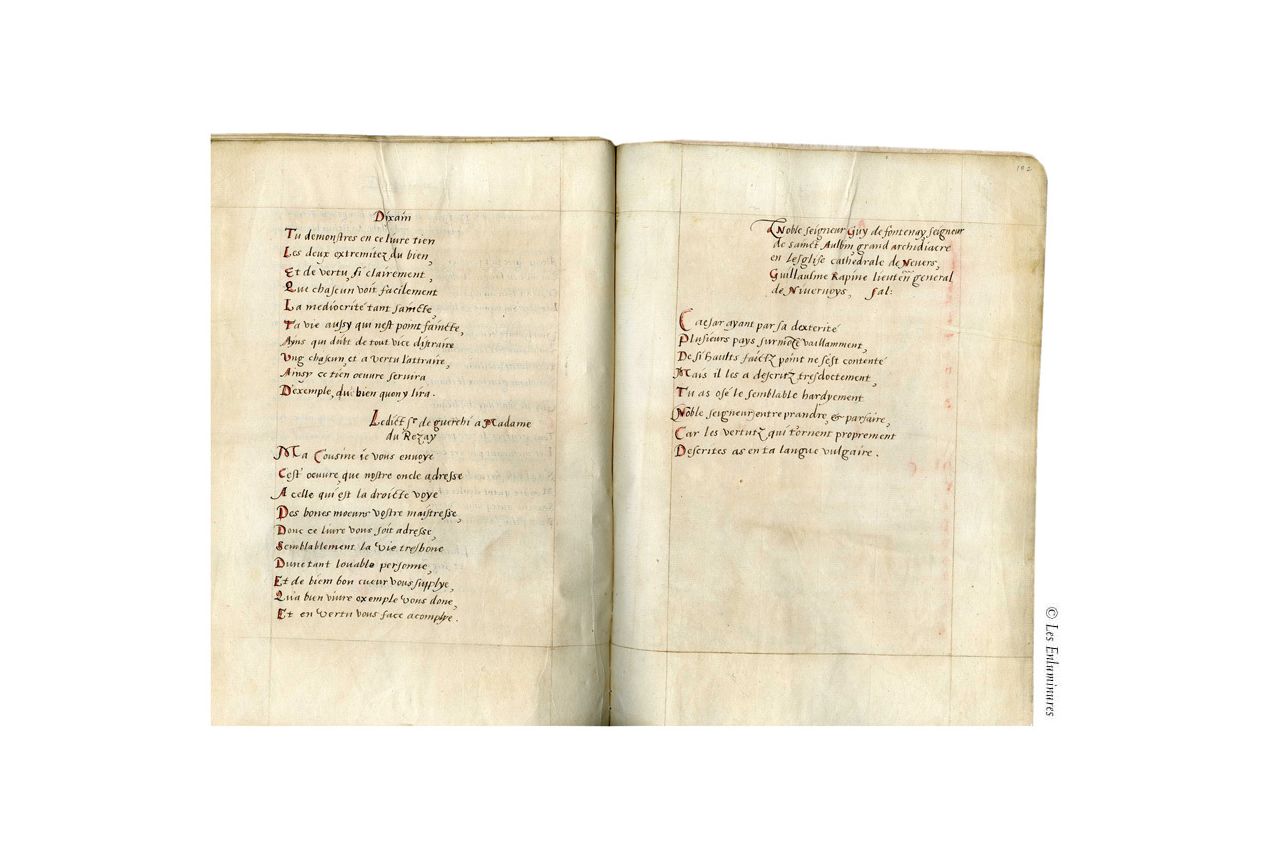 Dixain
Tu demonstres en ce livre tien
Les deux extremitez du bien,
Et de vertu, si clairement,
Que chascun voit facilement
La mediocrité tant saincte,
Ta vie aussy qui nest point faincte,
Ayns qui dubt de tout vice distraire
Ung chascun, et a vertu l'attraire,
Ainsy ce tien oeuvre servira
D'exemple, qui bien quon y lira.
Ledict sr de guerchi a Madame
du Rezay
Ma Cousine ie vous envoye
Cest' oeuvre, que nostre oncle adresse
A celle qui est la droicte voye
Des bones moeurs vostre maistresse,
Donc ce livre vous soit adresse,
Semblablement la vie tresbone
Dune tant louable personne,
Et de biem bon cueur vous supplye,
Qu'a bien vivre exemple vous done,
Et en vertu vous face acomplye.
102
A Noble seigneur Guy de fontenay seigneur
de sainct Aulbin, grand archidiacre
en Lesglise cathedrale de Nevers,
Guillaulme Rapine lieuten general
de Nivernoys, Sal:
Caesar ayant par sa dexterité
Plusieurs pays surmoté vaillamment,
De si haults faictz point ne s'est contenté
Mais il les a descritz tresdoctement,
Tu as osé le semblable hardyement
Noble seigneur, entreprandre, & parfaire,
Car les vertutz qui t'ornent proprement
Descrites as en ta langue vulgaire.
© Les Enluminures